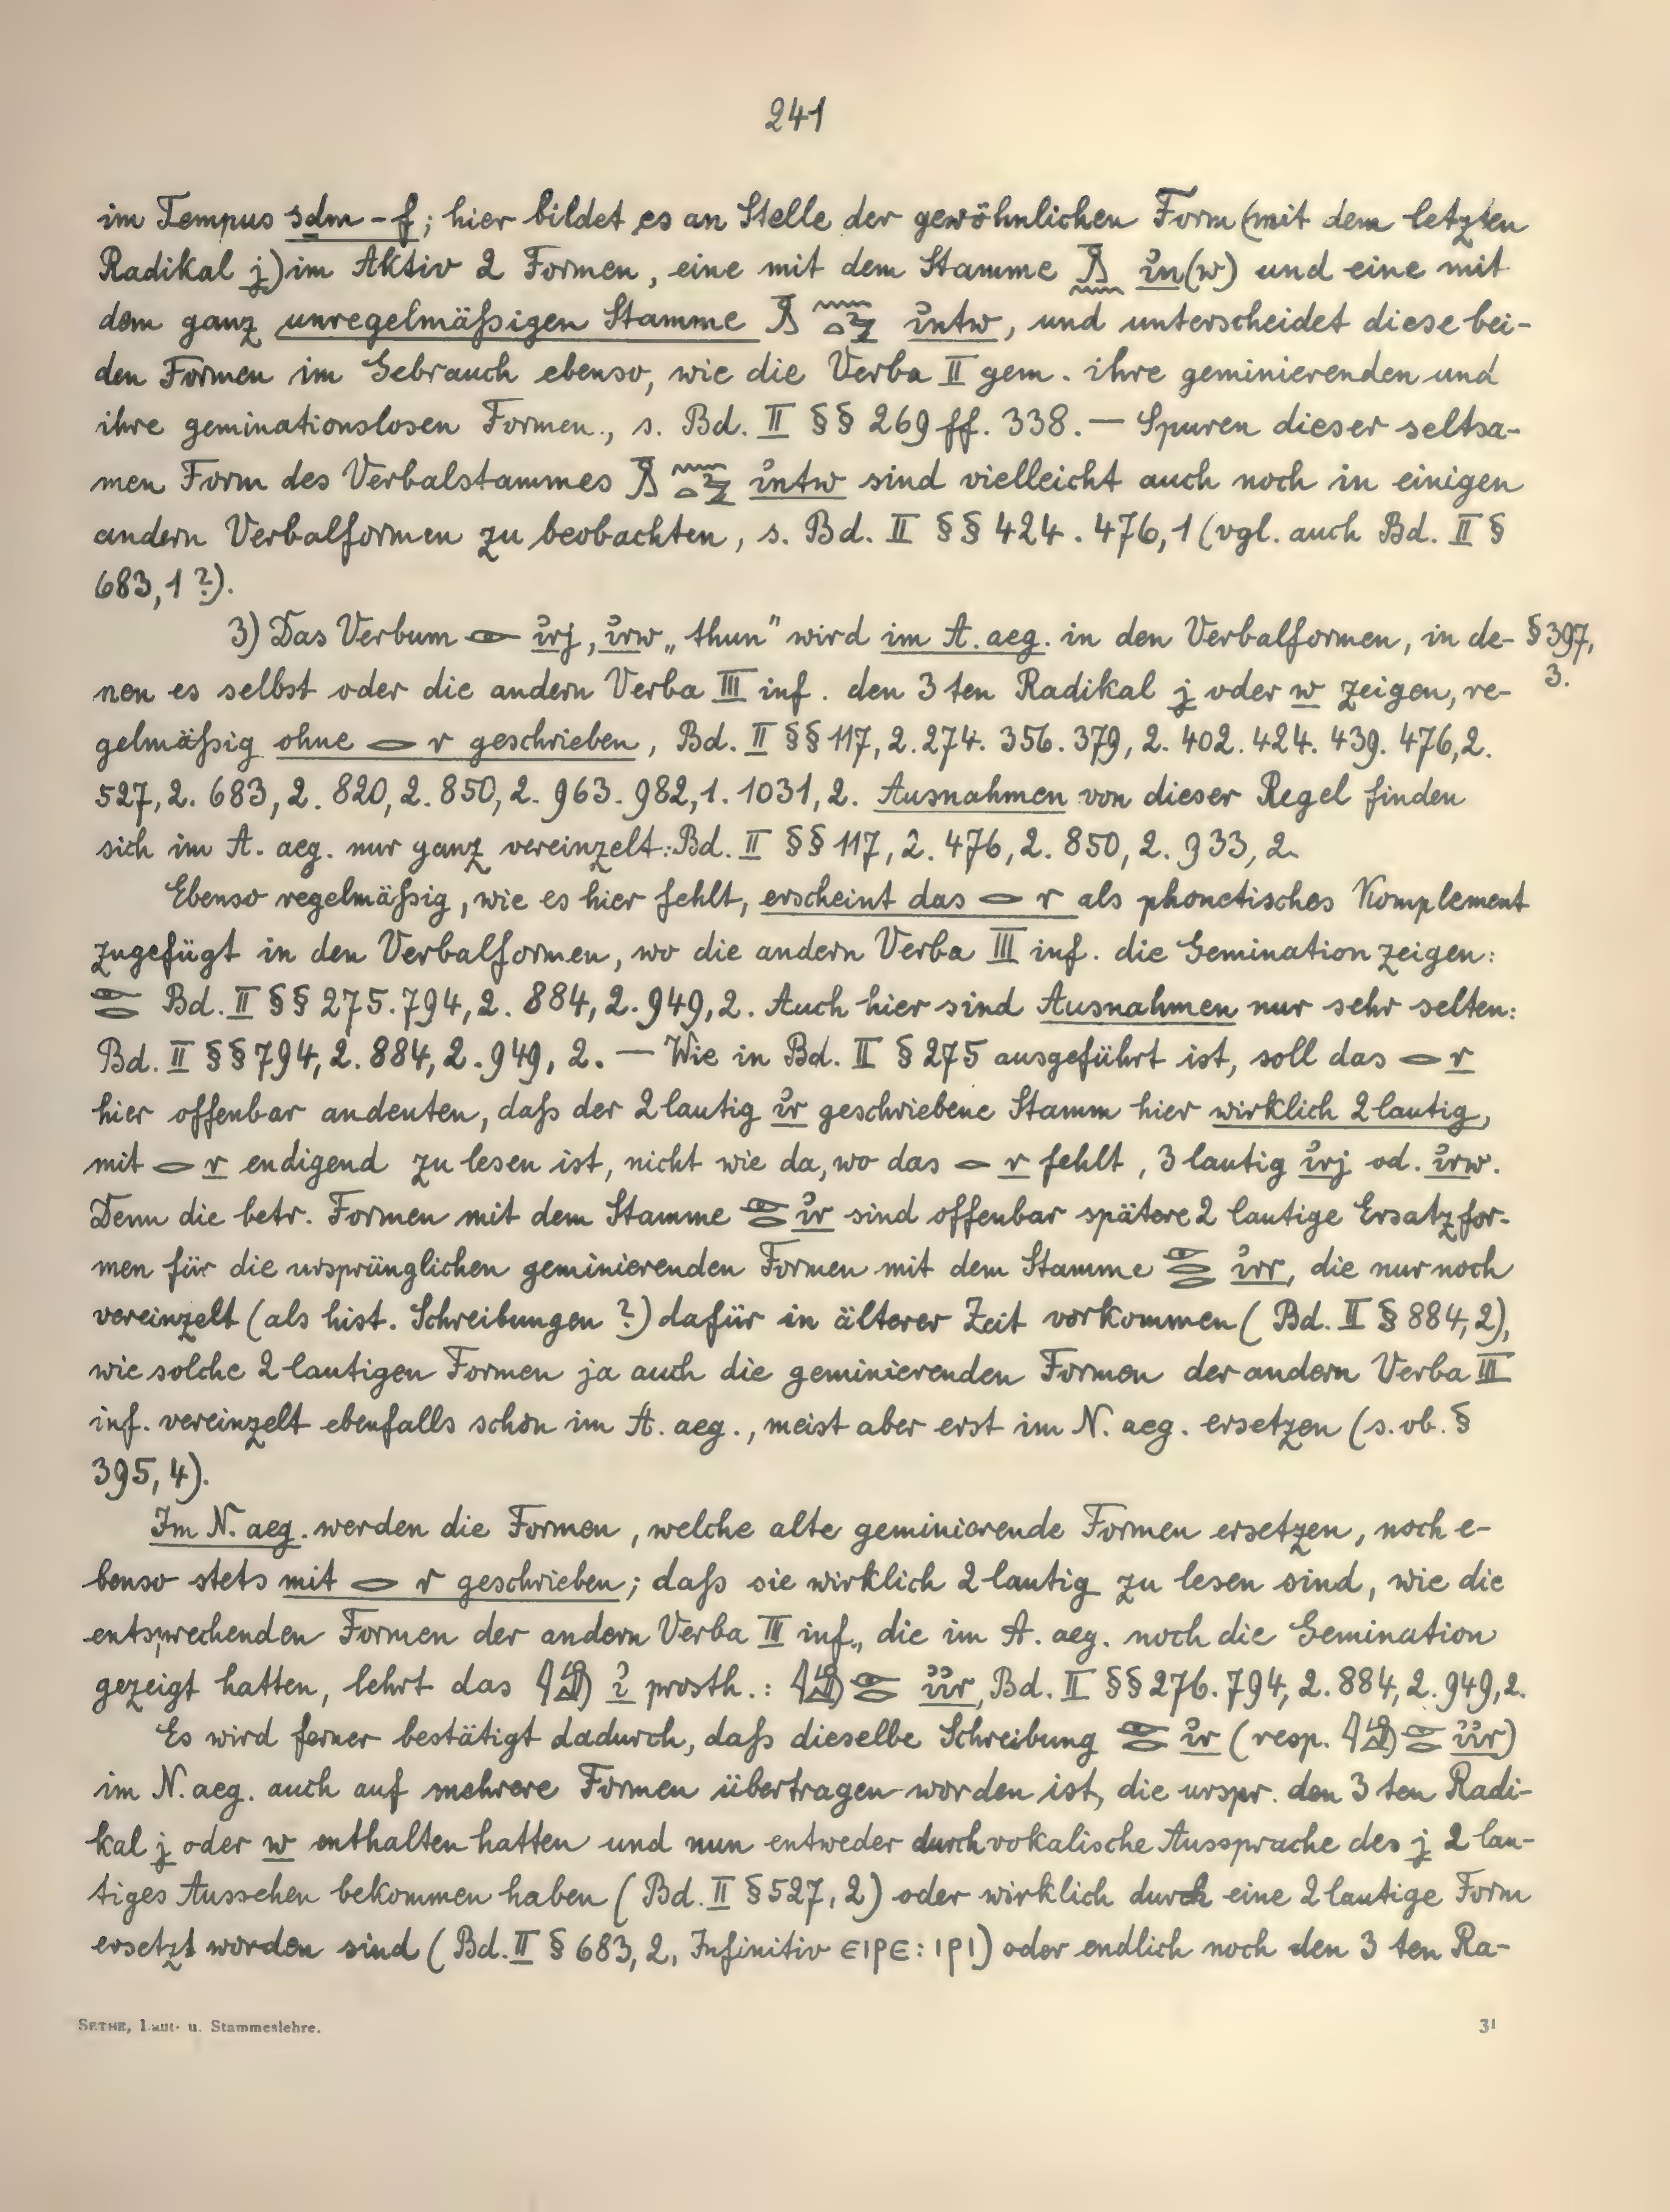 241
im Tempus sḏm-f; hier bildet es an Stelle der gewöhnlichen Form (mit dem letzten
Radikal j) im Aktiv 2 Formen, eine mit dem Stamme 𓏎𓈖 ỉn(w) und eine mit
dem ganz unregelmäßigen Stamme 𓏎𓈖𓏏𓅱 ỉntw, und unterscheidet diese bei-
den Formen im Gebrauch ebenso, wie die Verba II gem. ihre geminierenden und
ihre geminationslosen Formen, s. Bd. II §§ 269 ff. 338. — Spuren dieser seltsa-
men Form des Verbalstammes 𓏎𓈖𓏏𓅱 ỉntw sind vielleicht auch noch in einigen
andern Verbalformen zu beobachten, s. Bd. II §§ 424. 476,1 (vgl. auch Bd. II §
683,1 ?).
3) Das Verbum 𓁹 ỉrj, ỉrw „thun" wird im A. aeg. in den Verbalformen, in de- § 397,
nen es selbst oder die andern Verba III inf. den 3ten Radikal j oder w zeigen, re- 3.
gelmäßig ohne 𓂋 r geschrieben, Bd. II §§ 117,2. 274. 356. 379,2. 402. 424. 439. 476,2.
527,2. 683,2. 820,2. 850,2. 963. 982,1. 1031,2. Ausnahmen von dieser Regel finden
sich im A. aeg. nur ganz vereinzelt: Bd. II §§ 117,2. 476,2. 850,2. 933,2.
Ebenso regelmäßig, wie es hier fehlt, erscheint das 𓂋 r als phonetisches Komplement
zugefügt in den Verbalformen, wo die andern Verba III inf. die Gemination zeigen:
𓁹𓂋 Bd. II §§ 275. 794,2. 884,2. 949,2. Auch hier sind Ausnahmen nur sehr selten:
Bd. II §§ 794,2. 884,2. 949,2. — Wie in Bd. II § 275 ausgeführt ist, soll das 𓂋 r
hier offenbar andeuten, daß der 2lautig ỉr geschriebene Stamm hier wirklich 2lautig,
mit 𓂋 r endigend zu lesen ist, nicht wie da, wo das 𓂋 r fehlt, 3lautig ỉrj od. ỉrw.
Denn die betr. Formen mit dem Stamme 𓁹𓂋 ỉr sind offenbar spätere 2lautige Ersatzfor-
men für die ursprünglichen geminierenden Formen mit dem Stamme 𓁹𓂋𓂋 ỉrr, die nur noch
vereinzelt (als hist. Schreibungen ?) dafür in älterer Zeit vorkommen (Bd. II § 884,2),
wie solche 2lautigen Formen ja auch die geminierenden Formen der andern Verba III
inf. vereinzelt ebenfalls schon im A. aeg., meist aber erst im N. aeg. ersetzen (s. ob. §
395,4).
Im N. aeg. werden die Formen, welche alte geminierende Formen ersetzen, noch e-
benso stets mit 𓂋 r geschrieben; daß sie wirklich 2lautig zu lesen sind, wie die
entsprechenden Formen der andern Verba III inf., die im A. aeg. noch die Gemination
gezeigt hatten, lehrt das 𓇋𓀁 ỉ prosth.: 𓇋𓀁𓁹𓂋 ỉỉr, Bd. II §§ 276. 794,2. 884,2. 949,2.
Es wird ferner bestätigt dadurch, daß dieselbe Schreibung 𓁹𓂋 ỉr (resp. 𓇋𓀁𓁹𓂋 ỉỉr)
im N. aeg. auch auf mehrere Formen übertragen worden ist, die urspr. den 3ten Radi-
kal j oder w enthalten hatten und nun entweder durch vokalische Aussprache des j 2lau-
tiges Aussehen bekommen haben (Bd. II § 527,2) oder wirklich durch eine 2lautige Form
ersetzt worden sind (Bd. II § 683,2, Infinitiv ⲉⲓⲣⲉ: ⲓⲣⲓ) oder endlich noch den 3ten Ra-
SETHE, Laut- u. Stammeslehre. 31